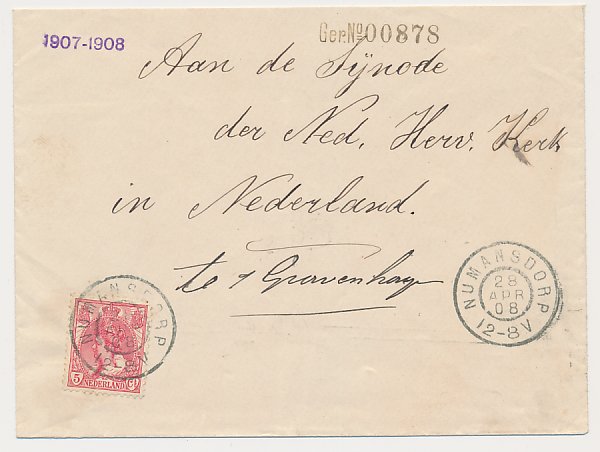 1907-1908
Ger.No 00878
Aan de Sÿnode
der Ned. Herv. Kerk
in Nederland.
te 's Gravenhage
NUMANSDORP
28
APR
08
12-8V
NUMANSDORP
5 NEDERLAND CT